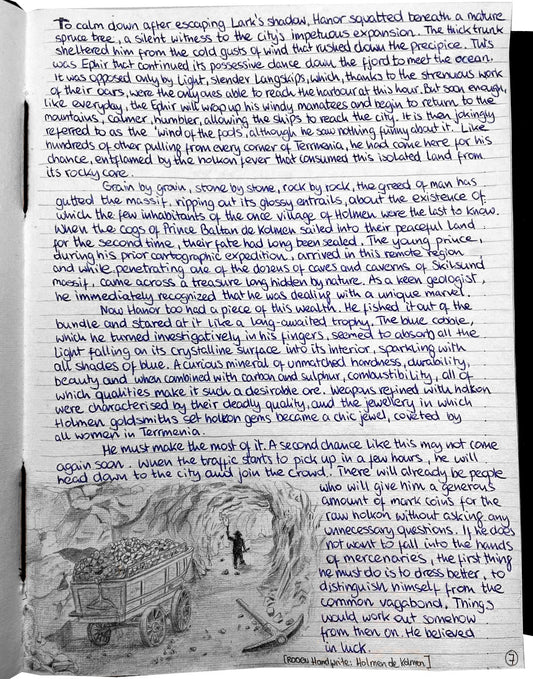 To calm down after escaping Lark's shadow, Hanor squatted beneath a mature
spruce tree, a silent witness to the city's impetuous expansion. The thick trunk
sheltered him from the cold gusts of wind that rushed down the precipice. This
was Ephir that continued its possessive dance down the fjord to meet the ocean.
It was opposed only by light, slender Langskips, which, thanks to the strenuous work
of their oars, were the only ones able to reach the harbour at this hour. But soon enough,
like everyday, the Ephir will wrap up his windy manatees and begin to return to the
mountains, calmer, humbler, allowing the ships to reach the city. It is then jokingly
referred to as the 'wind of the fools', although he saw nothing funny about it. Like
hundreds of other pulling from every corner of Terrmenia, he had come here for his
chance, entflamed by the holkon fever that consumed this isolated land from
its rocky core.
Grain by grain, stone by stone, rock by rock, the greed of man has
gutted the massif, ripping out its glossy entrails, about the existence of
which the few inhabitants of the once village of Holmen were the last to know.
When the cogs of Prince Baltan de Kolmen sailed into their peaceful land
for the second time, their fate had long been sealed. The young prince,
during his prior cartographic expedition, arrived in this remote region
and while penetrating one of the dozens of caves and caverns of Skilsund
massif, came across a treasure long hidden by nature. As a keen geologist,
he immediately recognized that he was dealing with a unique marvel.
Now Hanor too had a piece of this wealth. He fished it out of the
bundle and stared at it like a long-awaited trophy. The blue cobble,
which he turned investigatively in his fingers, seemed to absorb all the
light falling on its crystalline surface into its interior, sparkling with
all shades of blue. A curious mineral of unmatched hardness, durability,
beauty and when combined with carbon and sulphur, combustibility, all of
which qualities make it such a desirable ore. Weapons refined with holkon
were characterised by their deadly quality, and the jewellery in which
Holmen goldsmiths set holkon gems became a chic jewel, coveted by
all women in Terrmenia.
He must make the most of it. A second chance like this may not come
again soon. When the traffic starts to pick up in a few hours, he will
head down to the city and join the crowd. There will already be people
who will give him a generous
amount of mark coins for the
raw holkon without asking any
unnecessary questions. If he does
not want to fall into the hands
of mercenaries, the first thing
he must do is to dress better, to
distinguish himself from the
common vagabond. Things
would work out somehow
from then on. He believed
in luck.
[ROOEN Handwrite: Holmen de Kolmen]
7